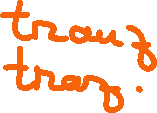 trouz
traz.